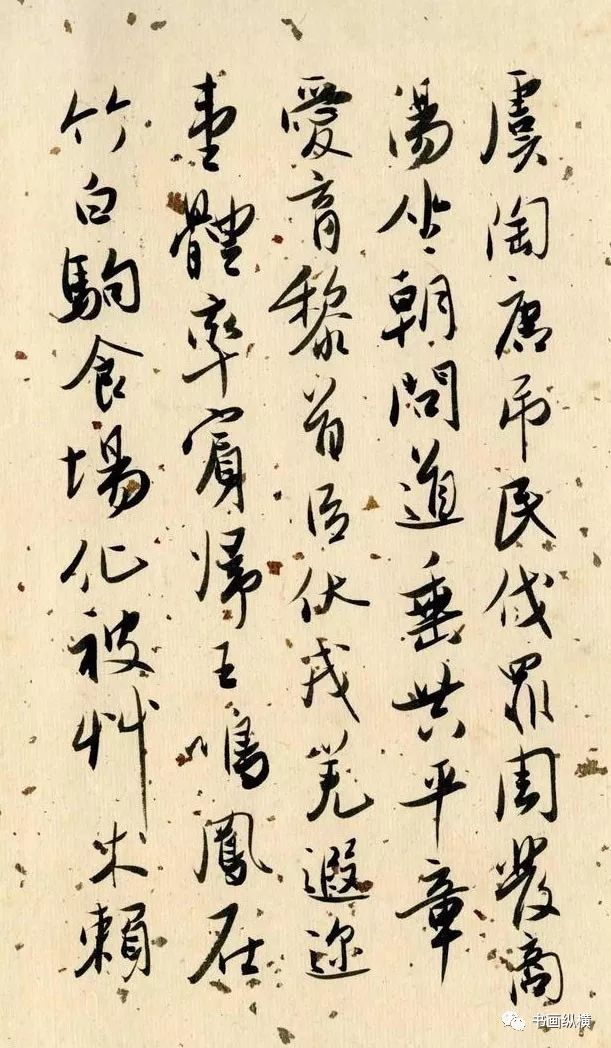 虞陶唐吊民伐罪周發商
湯坐朝問道垂共平章
愛育黎首臣伏戎羌遐迩
壹體率賓歸王鳴鳳在
竹白駒食場化被艸木賴
书画纵横